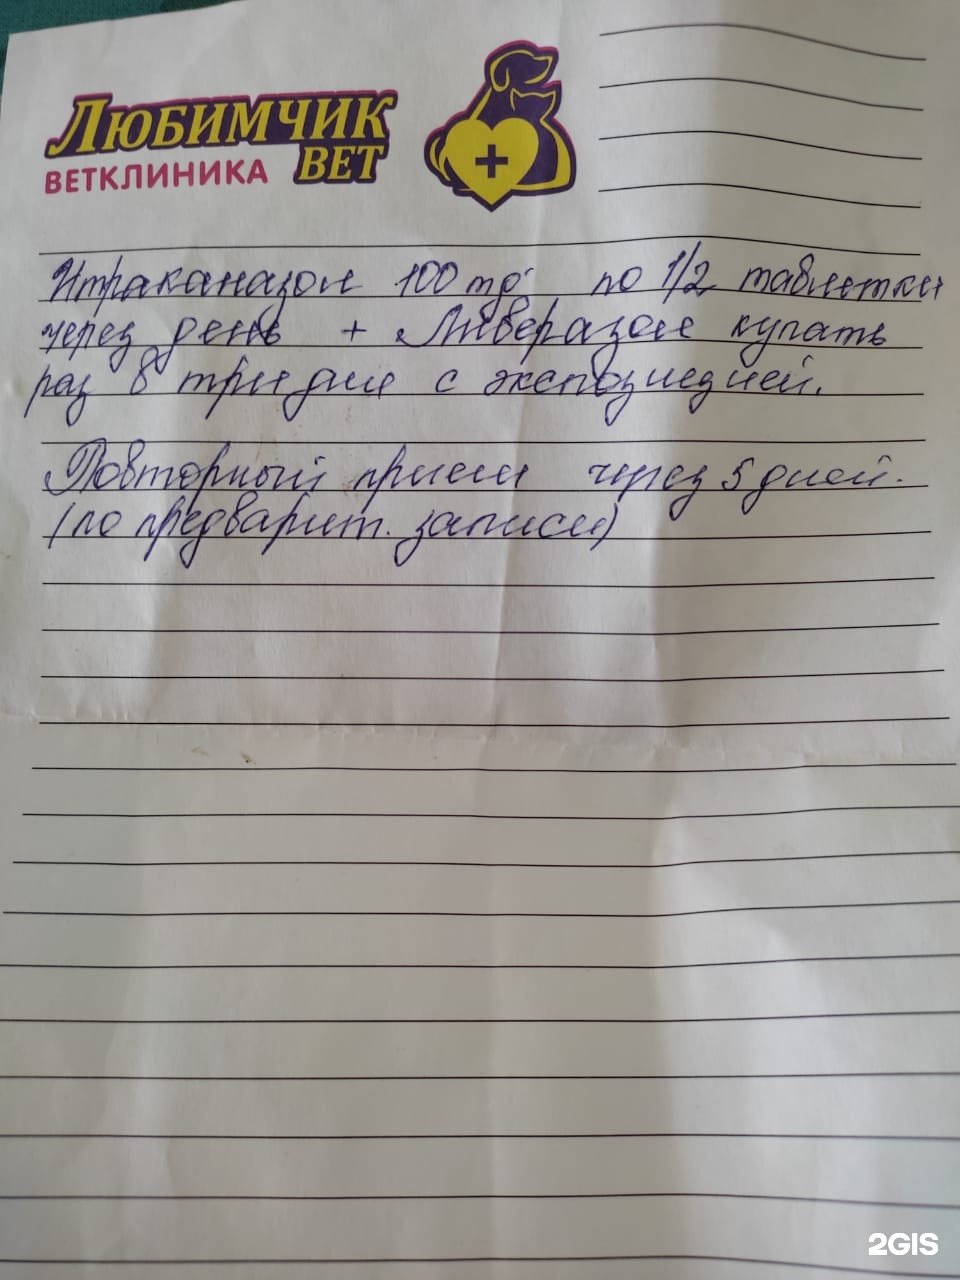 ЛЮБИМЧИК
ВЕТ
ВЕТКЛИНИКА
Итраканазол 100 mg по 1/2 таблетки
через день + Ливеразол купать
раз в три дня с экспозицией.
Повторный прием через 5 дней.
(по предварит. записи)
2GIS